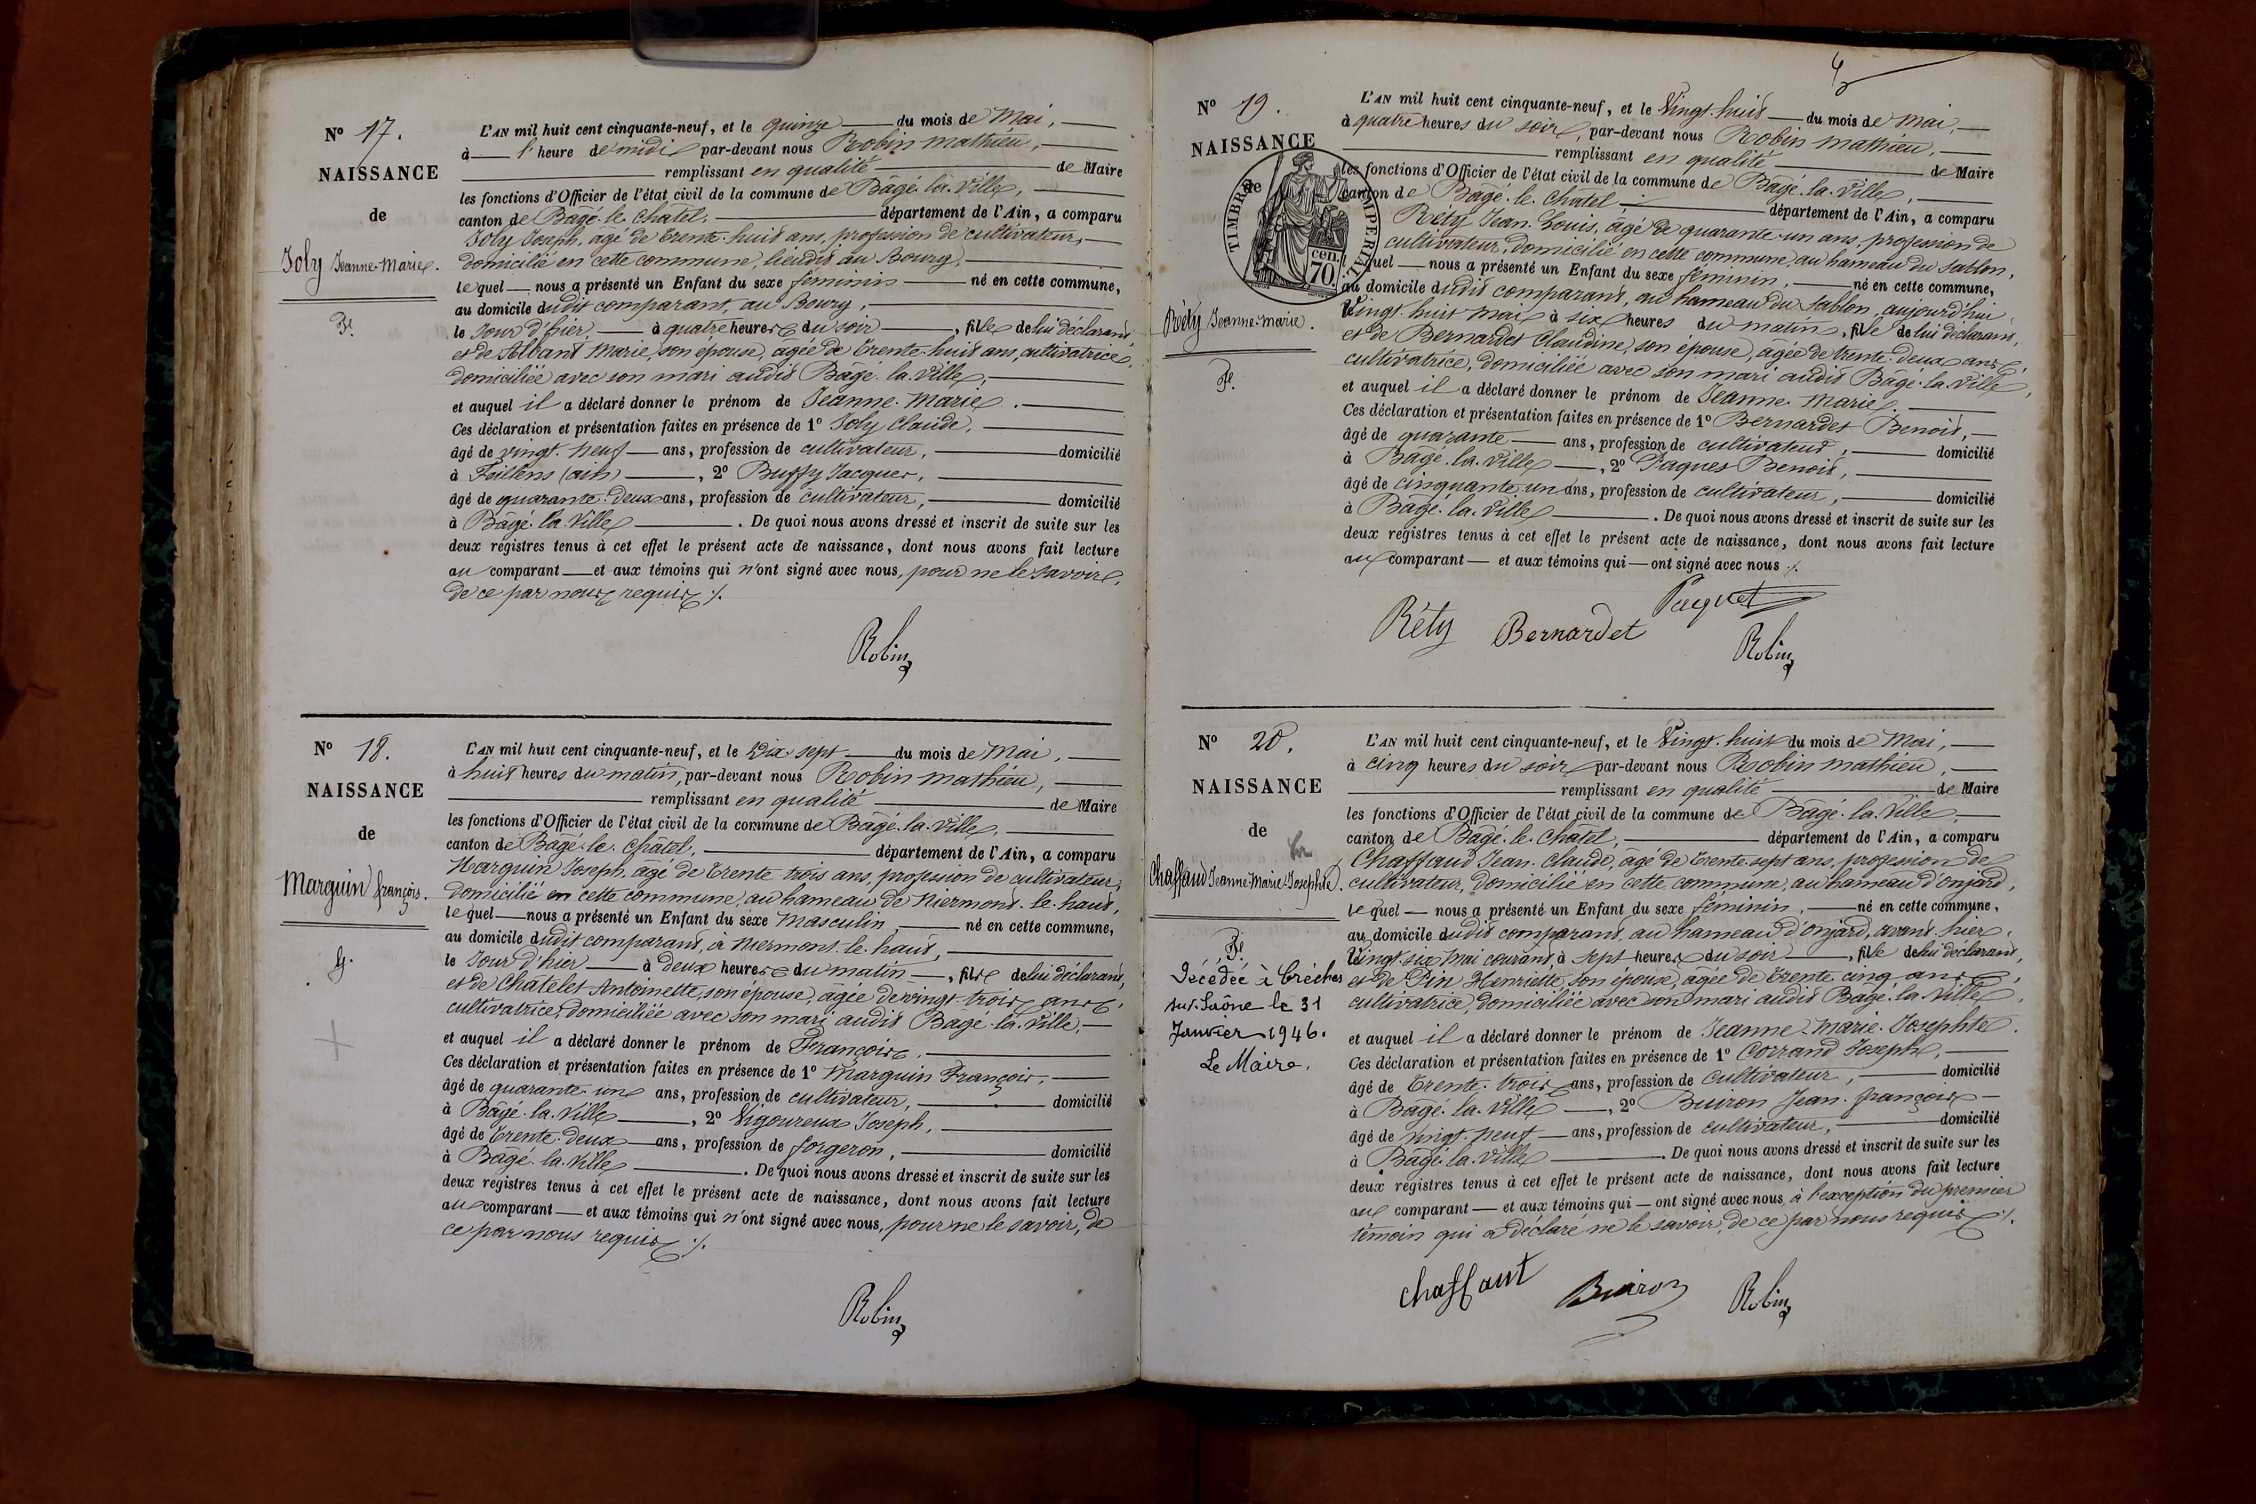 N° 17.
NAISSANCE
de
Joly Jeanne-Marie.
F.
L'AN mil huit cent cinquante-neuf, et le quinze du mois de Mai,
à l'heure de midi par-devant nous Robin Mathieu,
remplissant en qualité de Maire
les fonctions d'Officier de l'état civil de la commune de Bâgé-la-Ville,
canton de Bâgé-le-Châtel, département de l'Ain, a comparu
Joly Joseph, âgé de trente-huit ans, profession de cultivateur,
domicilié en cette commune, lieudit au Bourg,
lequel nous a présenté un Enfant du sexe féminin né en cette commune,
au domicile dudit comparant, au Bourg,
le Jour d'hier, à quatre heures du soir, fille de lui déclarant,
et de Alban Marie, son épouse, âgée de trente-huit ans, cultivatrice,
domiciliée avec son mari audit Bâgé-la-Ville,
et auquel il a déclaré donner le prénom de Jeanne-Marie.
Ces déclaration et présentation faites en présence de 1° Joly Claude,
âgé de vingt-neuf ans, profession de cultivateur, domicilié
à Feillens (ain), 2° Buffy Jacques,
âgé de quarante-deux ans, profession de cultivateur, domicilié
à Bâgé-la-Ville. De quoi nous avons dressé et inscrit de suite sur les
deux régistres tenus à cet effet le présent acte de naissance, dont nous avons fait lecture
au comparant et aux témoins qui n'ont signé avec nous, pour ne le savoir,
de ce par nous requis ./.
Robin
N° 18.
NAISSANCE
de
Marguin françois.
g.
L'AN mil huit cent cinquante-neuf, et le Dix-sept du mois de Mai,
à huit heures du matin, par-devant nous Robin Mathieu,
remplissant en qualité de Maire
les fonctions d'Officier de l'état civil de la commune de Bâgé-la-Ville,
canton de Bâgé-le-Châtel, département de l'Ain, a comparu
Marguin Joseph, âgé de trente trois ans, profession de cultivateur,
domicilié en cette commune, au hameau de Niermont-le-haut,
lequel nous a présenté un Enfant du sexe Masculin, né en cette commune,
au domicile dudit comparant, à Niermont-le-haut,
le Jour d'hier à deux heures du matin, fils de lui déclarant,
et de Chatelet Antoinette, son épouse, âgée de vingt-trois ans,
cultivatrice, domiciliée avec son mari audit Bâgé-la-Ville,
et auquel il a déclaré donner le prénom de François.
Ces déclaration et présentation faites en présence de 1° Marguin François,
âgé de quarante-un ans, profession de cultivateur, domicilié
à Bâgé-la-Ville, 2° Vigoureux Joseph,
âgé de trente-deux ans, profession de forgeron, domicilié
à Bâgé-la-Ville. De quoi nous avons dressé et inscrit de suite sur les
deux registres tenus à cet effet le présent acte de naissance, dont nous avons fait lecture
au comparant et aux témoins qui n'ont signé avec nous, pour ne le savoir, de
ce par nous requis ./.
Robin
N° 19.
NAISSANCE
de
TIMBRE IMPERIAL
70 cen.
Réty Jeanne-Marie.
F.
L'AN mil huit cent cinquante-neuf, et le Vingt-huit du mois de Mai,
à quatre heures du soir, par-devant nous Robin Mathieu,
remplissant en qualité de Maire
les fonctions d'Officier de l'état civil de la commune de Bâgé-la-Ville,
canton de Bâgé-le-Châtel, département de l'Ain, a comparu
Réty Jean-Louis, âgé de quarante-un ans, profession de
cultivateur, domicilié en cette commune, au hameau du Sablon,
quel nous a présenté un Enfant du sexe féminin, né en cette commune,
au domicile dudit comparant, au hameau du Sablon, aujourd'hui
Vingt-huit Mai à six heures du matin, fille de lui déclarant,
et de Bernardet Claudine, son épouse, âgée de trente-deux ans,
cultivatrice, domiciliée avec son mari audit Bâgé-la-Ville,
et auquel il a déclaré donner le prénom de Jeanne-Marie.
Ces déclaration et présentation faites en présence de 1° Bernardet Benoit,
âgé de quarante ans, profession de cultivateur, domicilié
à Bâgé-la-Ville, 2° Paquet Benoit,
âgé de cinquante-un ans, profession de cultivateur, domicilié
à Bâgé-la-Ville. De quoi nous avons dressé et inscrit de suite sur les
deux registres tenus à cet effet le présent acte de naissance, dont nous avons fait lecture
au comparant et aux témoins qui ont signé avec nous ./.
Paquet
Réty Bernardet Robin
N° 20.
NAISSANCE
de
Chaffaud Jeanne-Marie-Josephte.
F.
Décédée à Crèches
sur-Saône le 31
Janvier 1946.
Le Maire.
L'AN mil huit cent cinquante-neuf, et le Vingt-huit du mois de Mai,
à cinq heures du soir par-devant nous Robin Mathieu,
remplissant en qualité de Maire
les fonctions d'Officier de l'état civil de la commune de Bâgé-la-Ville,
canton de Bâgé-le-Châtel, département de l'Ain, a comparu
Chaffaud Jean-Claude, âgé de trente-sept ans, profession de
cultivateur, domicilié en cette commune, au hameau d'onjard,
lequel nous a présenté un Enfant du sexe féminin, né en cette commune,
au domicile dudit comparant, au hameau d'onjard, avant-hier,
Vingt-six Mai courant à sept heures du soir, fille de lui déclarant,
et de Pin Henriette, son épouse, âgée de trente cinq ans,
cultivatrice, domiciliée avec son mari audit Bâgé-la-Ville,
et auquel il a déclaré donner le prénom de Jeanne-Marie-Josephte.
Ces déclaration et présentation faites en présence de 1° Corrand Joseph,
âgé de trente-trois ans, profession de cultivateur, domicilié
à Bâgé-la-Ville, 2° Buiron Jean-françois
âgé de vingt-neuf ans, profession de cultivateur, domicilié
à Bâgé-la-Ville. De quoi nous avons dressé et inscrit de suite sur les
deux registres tenus à cet effet le présent acte de naissance, dont nous avons fait lecture
au comparant et aux témoins qui ont signé avec nous à l'exception du premier
témoin qui a déclaré ne le savoir, de ce par nous requis ./.
Chaffaut Buiron Robin